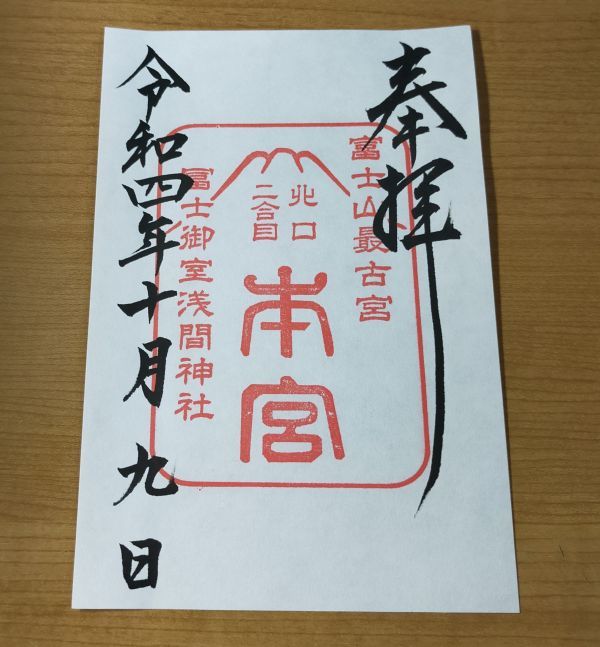 奉拝
富士山最古宮
北口
二合目
本宮
冨士御室浅間神社
令和四年十月九日